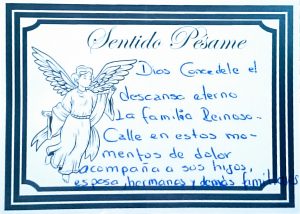 Sentido Pésame
Dios Concedele el
descanso eterno
La familia Reinoso-
Calle en estos mo-
mentos de dolor
acompaña a sus hijos,
esposa, hermanos y demás familiares